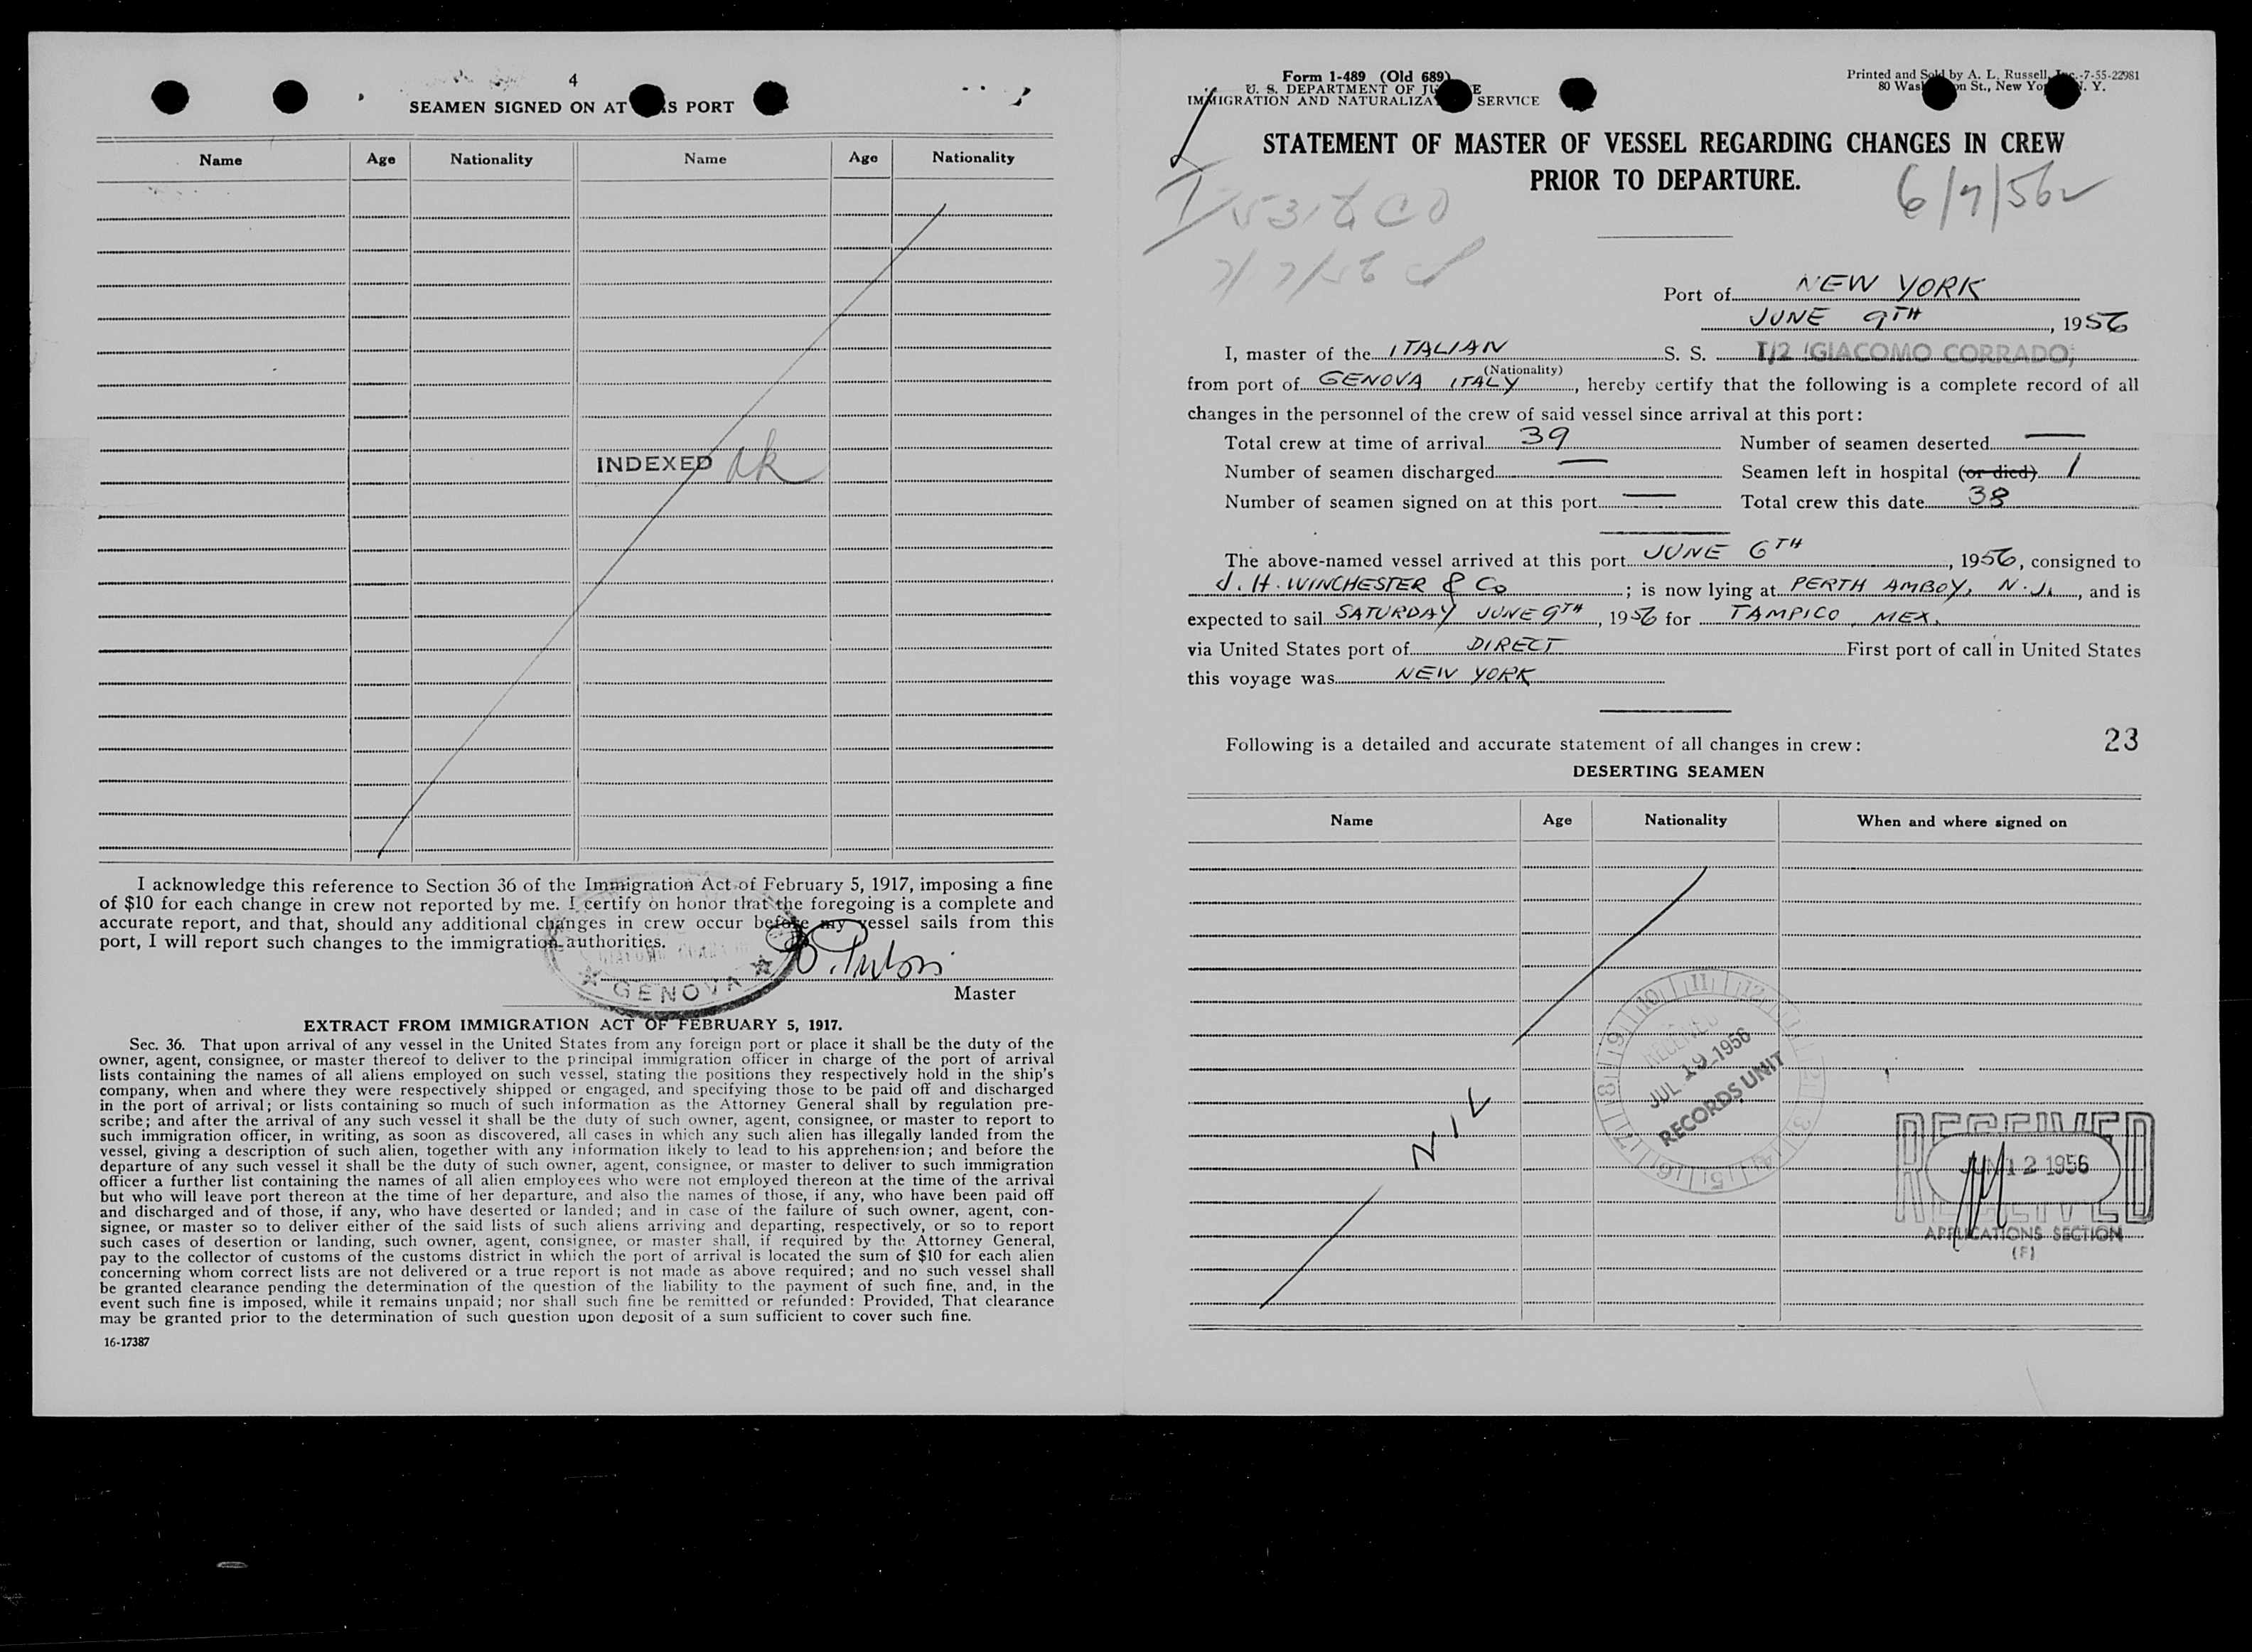 4
SEAMEN SIGNED ON AT S PORT
Name Age Nationality Name Age Nationality
INDEXED
I acknowledge this reference to Section 36 of the Immigration Act of February 5, 1917, imposing a fine
of $10 for each change in crew not reported by me. I certify on honor that the foregoing is a complete and
accurate report, and that, should any additional changes in crew occur before my vessel sails from this
port, I will report such changes to the immigration authorities.
GENOVA
Master
EXTRACT FROM IMMIGRATION ACT OF FEBRUARY 5, 1917.
Sec. 36. That upon arrival of any vessel in the United States from any foreign port or place it shall be the duty of the
owner, agent, consignee, or master thereof to deliver to the principal immigration officer in charge of the port of arrival
lists containing the names of all aliens employed on such vessel, stating the positions they respectively hold in the ship's
company, when and where they were respectively shipped or engaged, and specifying those to be paid off and discharged
in the port of arrival; or lists containing so much of such information as the Attorney General shall by regulation pre-
scribe; and after the arrival of any such vessel it shall be the duty of such owner, agent, consignee, or master to report to
such immigration officer, in writing, as soon as discovered, all cases in which any such alien has illegally landed from the
vessel, giving a description of such alien, together with any information likely to lead to his apprehension; and before the
departure of any such vessel it shall be the duty of such owner, agent, consignee, or master to deliver to such immigration
officer a further list containing the names of all alien employees who were not employed thereon at the time of the arrival
but who will leave port thereon at the time of her departure, and also the names of those, if any, who have been paid off
and discharged and of those, if any, who have deserted or landed; and in case of the failure of such owner, agent, con-
signee, or master so to deliver either of the said lists of such aliens arriving and departing, respectively, or so to report
such cases of desertion or landing, such owner, agent, consignee, or master shall, if required by the Attorney General,
pay to the collector of customs of the customs district in which the port of arrival is located the sum of $10 for each alien
concerning whom correct lists are not delivered or a true report is not made as above required; and no such vessel shall
be granted clearance pending the determination of the question of the liability to the payment of such fine, and, in the
event such fine is imposed, while it remains unpaid; nor shall such fine be remitted or refunded: Provided, That clearance
may be granted prior to the determination of such question upon deposit of a sum sufficient to cover such fine.
16-17387
Form 1-489 (Old 689)
U. S. DEPARTMENT OF
IMMIGRATION AND SERVICE
Printed and Sold by A. L. Russell, -7-55-22981
80 St., New Y.
STATEMENT OF MASTER OF VESSEL REGARDING CHANGES IN CREW
PRIOR TO DEPARTURE.
Port of NEW YORK
JUNE 9TH, 1956
I, master of the ITALIAN S. S. "GIACOMO CORRADO"
(Nationality)
from port of GENOVA ITALY, hereby certify that the following is a complete record of all
changes in the personnel of the crew of said vessel since arrival at this port:
Total crew at time of arrival 39 Number of seamen deserted —
Number of seamen discharged — Seamen left in hospital (or died) 1
Number of seamen signed on at this port — Total crew this date 38
The above-named vessel arrived at this port JUNE 6TH, 1956, consigned to
J. H. WINCHESTER & Co; is now lying at PERTH AMBOY, N.J., and is
expected to sail SATURDAY JUNE 9TH, 1956 for TAMPICO, MEX.
via United States port of DIRECT First port of call in United States
this voyage was NEW YORK
Following is a detailed and accurate statement of all changes in crew: 23
DESERTING SEAMEN
Name Age Nationality When and where signed on
NIL
RECEIVED
JUL 19 1956
RECORDS UNIT
RECEIVED
JUN 12 1956
APPLICATIONS SECTION
(F)